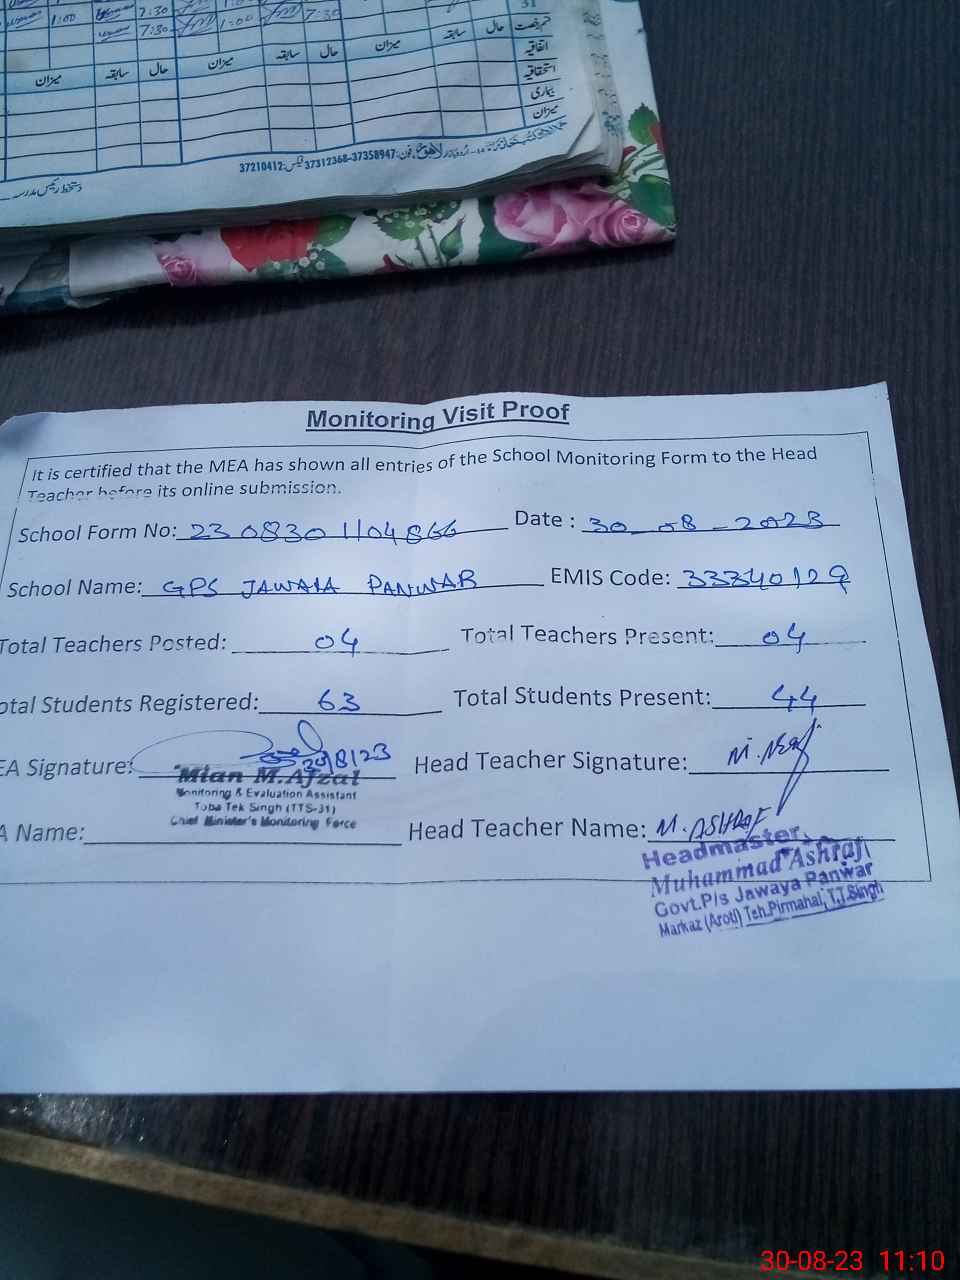 1:00 7:30
7:30 1:00 7:30
31
میزان سابقہ حال میزان سابقہ حال میزان سابقہ حال
اتفاقیہ
استحقاقیہ
بیماری
میزان
37210412:فیکس 37312368-37358947:فون
دستخط رئیس مدرسہ
Monitoring Visit Proof
It is certified that the MEA has shown all entries of the School Monitoring Form to the Head
Teacher before its online submission.
School Form No: 230830 1104866 Date : 30-08-2023
School Name: GPS JAWAIA PANWAR EMIS Code: 33340129
Total Teachers Posted: 04 Total Teachers Present: 04
otal Students Registered: 63 Total Students Present: 44
EA Signature: 30/8/23 Head Teacher Signature: M. Ashraf
Mian M.Afzal
Monitoring & Evaluation Assistant
Toba Tek Singh (TTS-31)
Chief Minister's Monitoring Force
A Name: Head Teacher Name: M. ASHRAF
Headmaster
Muhammad Ashraf
Govt.P/s Jawaya Panwar
Markaz (Aroti) Teh.Pirmahal, T.T.Singh
30-08-23 11:10